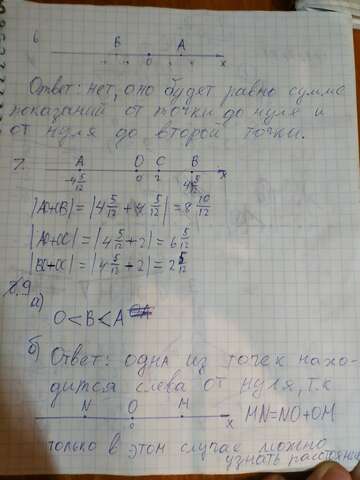 6
B A
0 x
Ответ: нет, оно будет равно сумме
показаний от точки до нуля и
от нуля до второй точки.
7.
A O C B
-4 5/12 0 2 4 5/12 x
|AO+OB| = |4 5/12 + 4 5/12| = 8 10/12
|AO+OC| = |4 5/12 + 2| = 6 5/12
|BO+OC| = |4 5/12 - 2| = 2 5/12
9
а)
O < B < A
б) Ответ: одна из точек нахо-
дится слева от нуля, т.к
N O M
0 x MN=NO+OM
только в этом случае можно
узнать расстояние